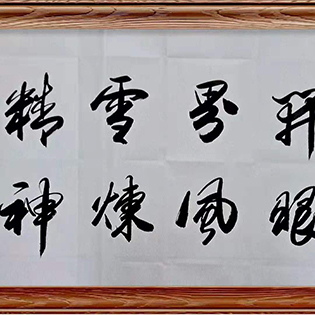 开眼
界風
雪煉
精神